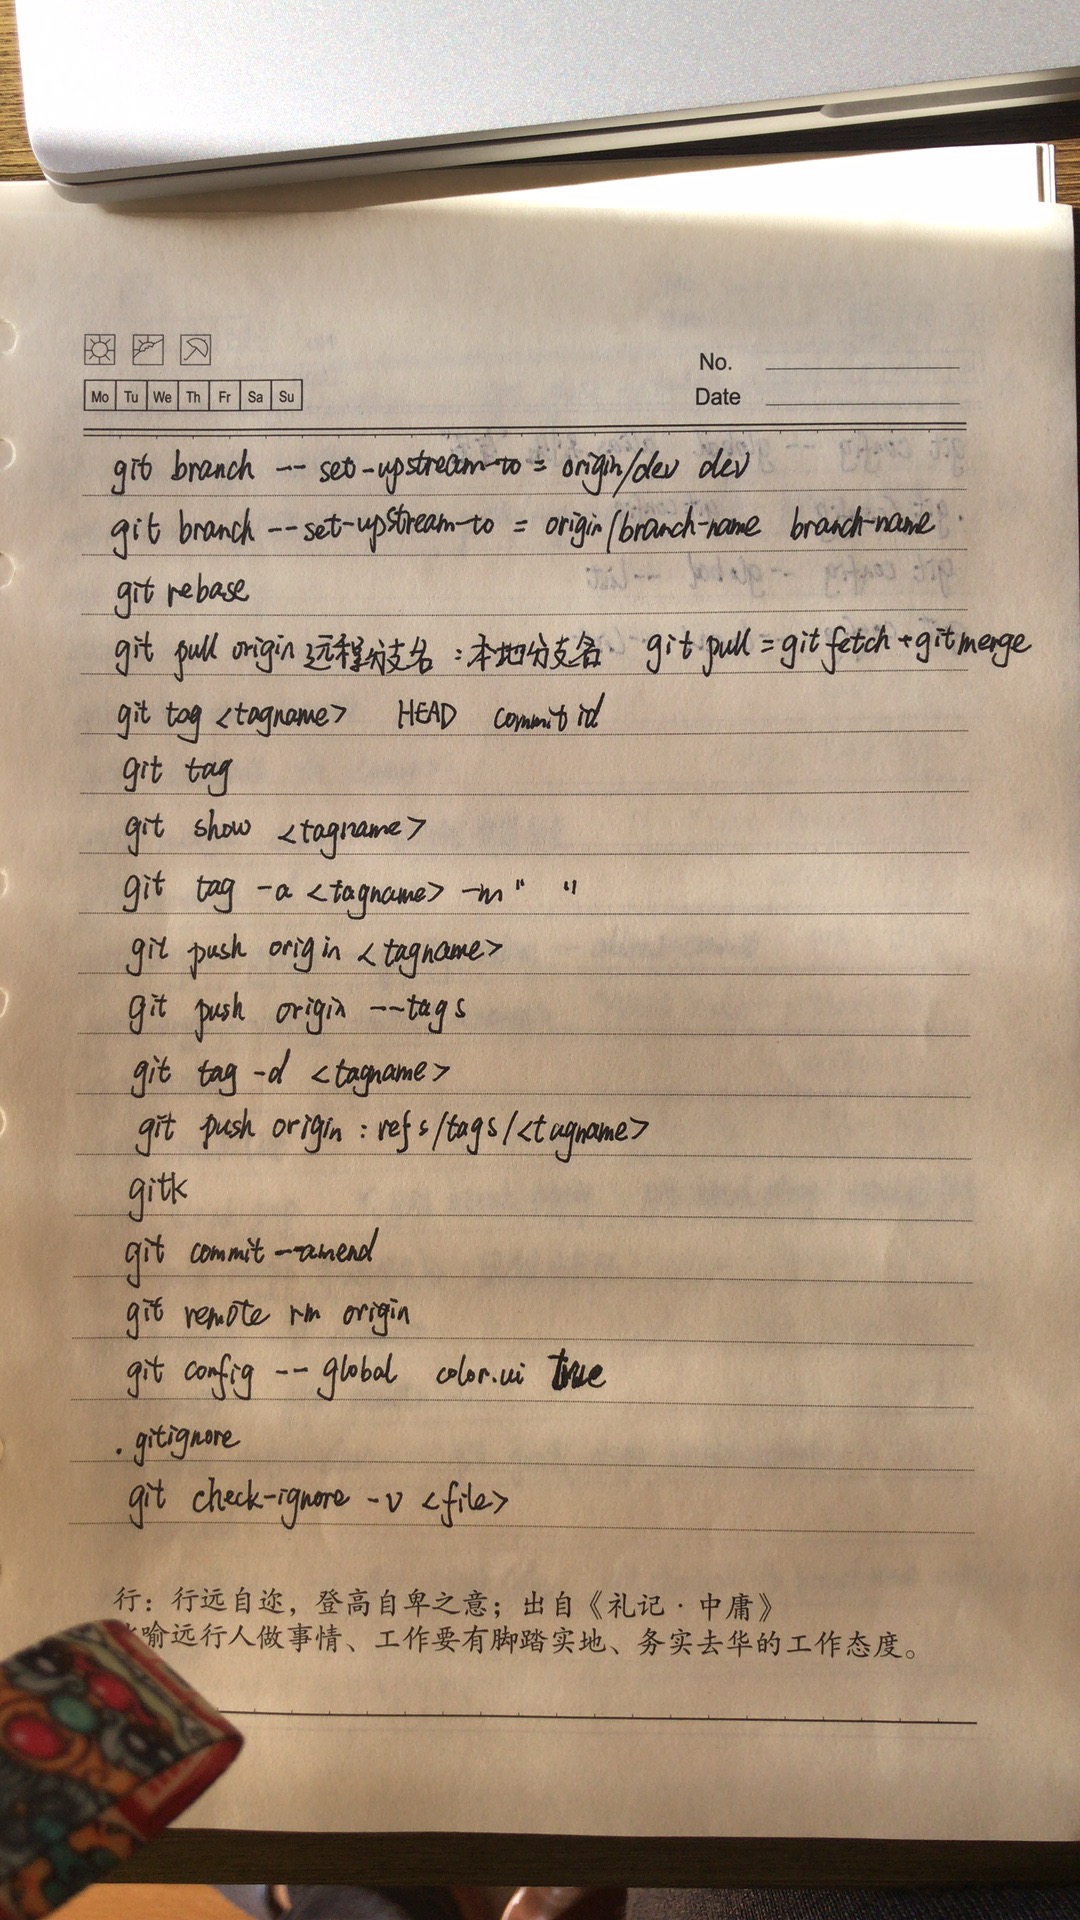 No.
Mo Tu We Th Fr Sa Su
Date
git branch -- set-upstream-to = origin/dev dev
git branch --set-upstream-to = origin/branch-name branch-name
git rebase
git pull origin 远程分支名 : 本地分支名 git pull = git fetch + git merge
git tag <tagname> HEAD commit id
git tag
git show <tagname>
git tag -a <tagname> -m " "
git push origin <tagname>
git push origin --tags
git tag -d <tagname>
git push origin : refs/tags/<tagname>
gitk
git commit --amend
git remote rm origin
git config -- global color.ui true
.gitignore
git check-ignore -v <file>
行：行远自迩，登高自卑之意；出自《礼记·中庸》
喻远行人做事情、工作要有脚踏实地、务实去华的工作态度。